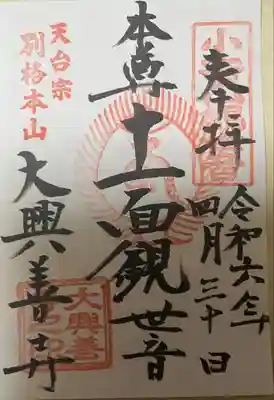 奉拝
令和六年
四月三十日
本尊十一面観世音
天台宗
別格本山
大興善寺
大興善